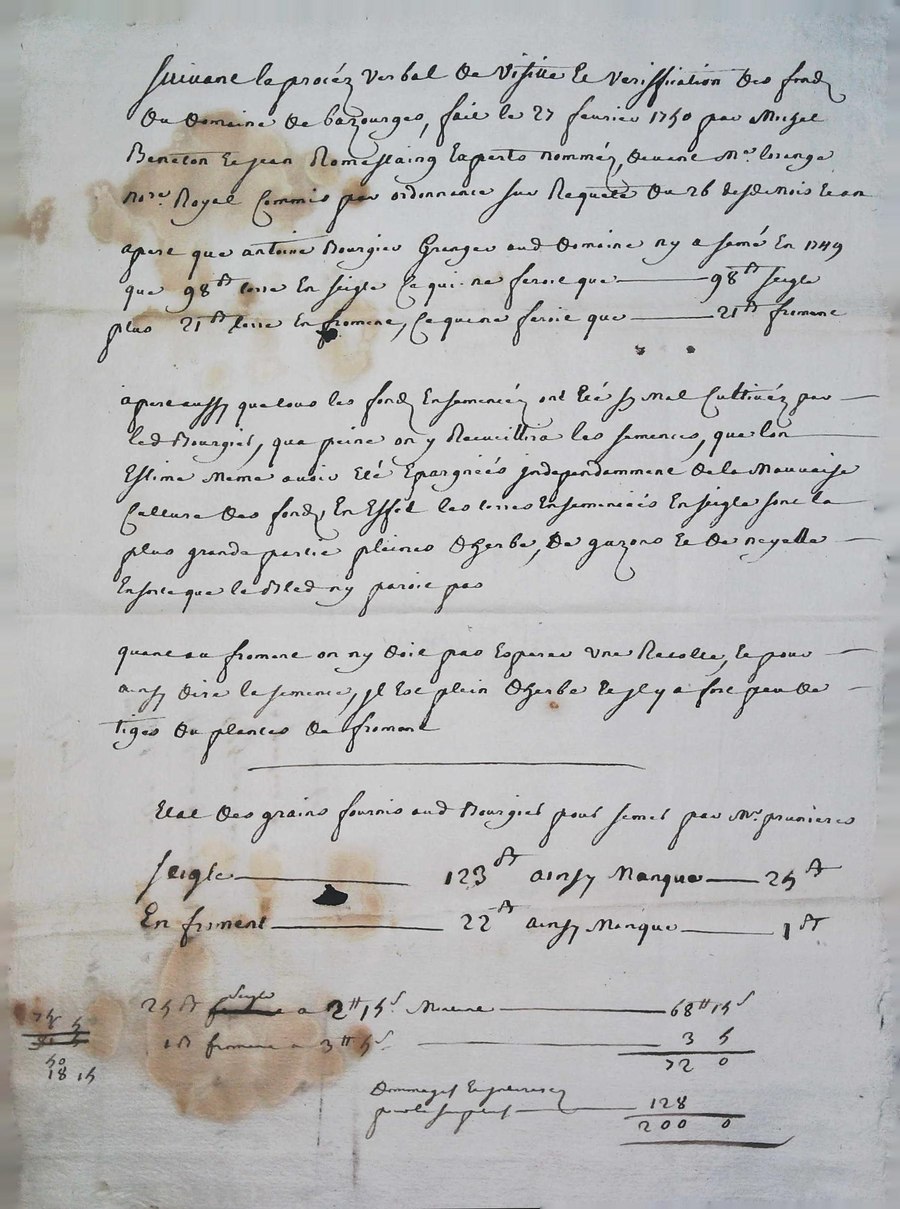 Suivant le procéz verbal de visitte et veriffication des fondz
du domaine de bazourges, fait le 27 fevrier 1750 par Michel
Beneton et jean Romestaing Experts nomméz, devant Me. lorange
nore. Royal Commis par ordonnance sur Requete du 26 desd. mois et an
apert que antoine Bourgier Granger aud domaine ny a semé En 1749
que 98 terre En seigle Ce qui ne feroit que 98 seigle
plus 21 terre En froment, Ce qui ne feroit que 21 froment
apert aussy que tous les fondz Ensemencéz ont Eté sy mal Cultivéz par
led Bourgier, que peine on y Recueillira les semences, que lon
Estime meme avoir Eté Epargnées independamment de la Mauvaise
Culture des fondz, En Effet les terres Ensemencées En seigle sont la
plus grande partie pleines dherbe, de gazons et de neyelle
Ensorte que le Bled ny paroit pas
quant au froment on ny doit pas Esperer une Recolte, et pour
ainsy dire la semence, jl Est plein dherbe et jl y a fort peu de
tiges ou plantes de froment
Etat des grains fournis aud Bourgier pour semer par Mr. prunieres
seigle 123 ainsy Manque 25
En froment 22 ainsy Manque 1
seigle
25 a 2 15s 68 15s
1 froment a 3 5s 3 5
72 0
50
18 15
Dommages Et jnterestz
pour le surplus 128
200 0